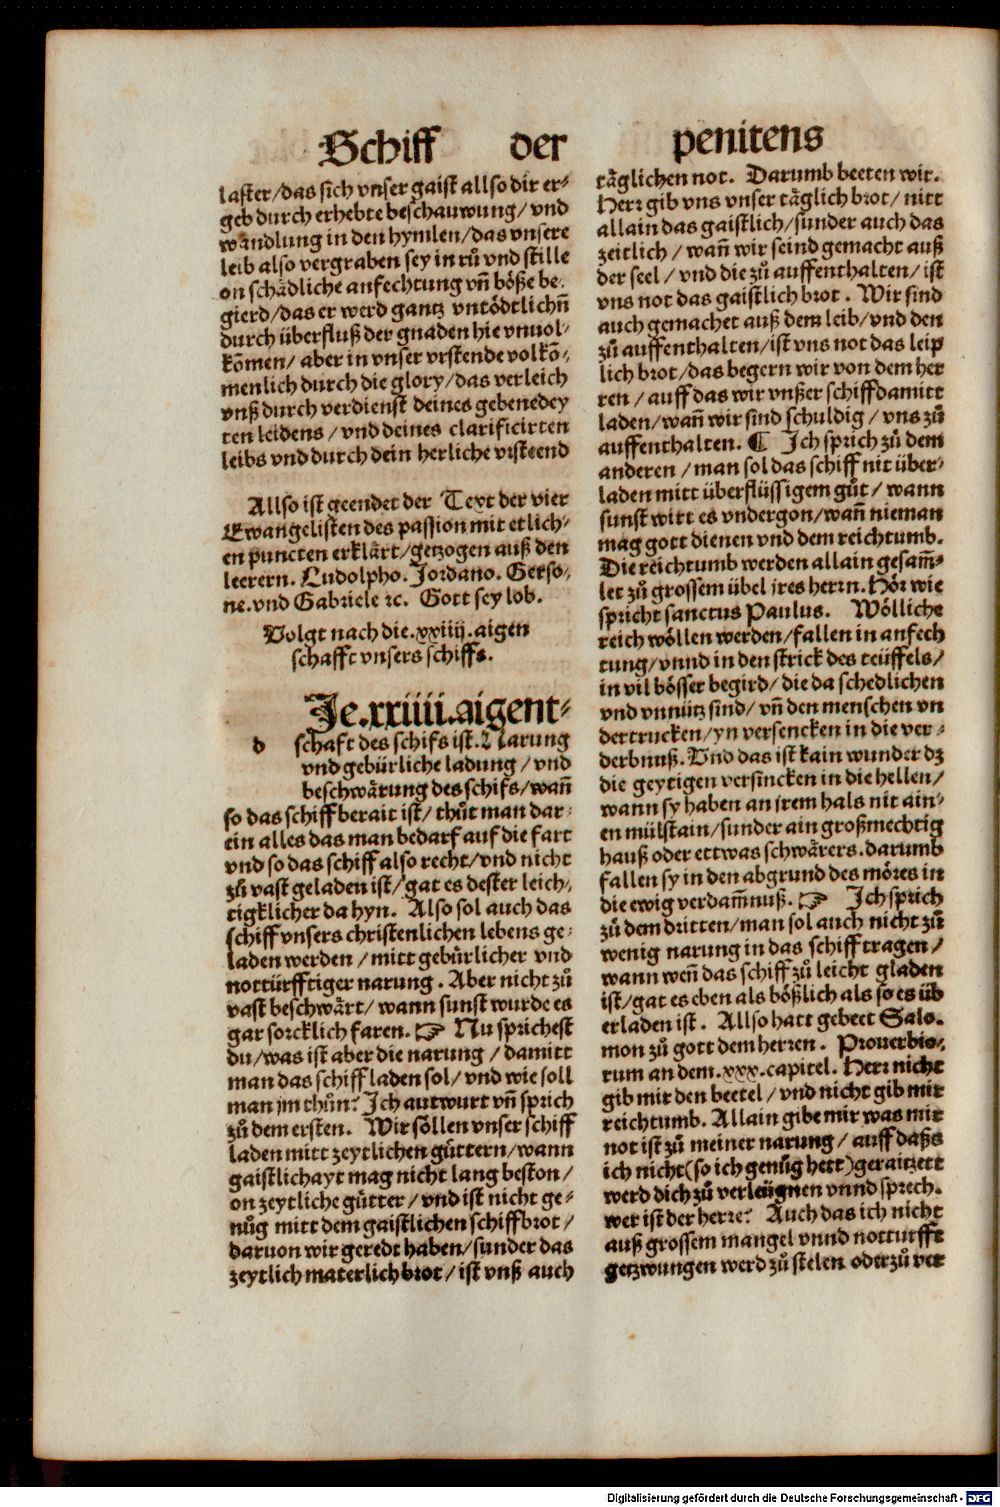 Schiff der penitens
laster/das sich vnser gaist allso dir er⸗
geb durch erhebte beschauwung/vnd
wandlung in den hymlen/das vnsere
leib also vergraben sey in rů vnd stille
on schädliche anfechtung vñ böße be⸗
gierd/das er werd gantz vntödtlichñ
durch überfluß der gnaden hie vnuol⸗
kõmen/ aber in vnser vrstende volkõ⸗
menlich durch die glory/das verleich
vnß durch verdienst deines gebenedey
ten leidens / vnd deines clarificirten
leibs vnd durch dein herliche vrsteend
Allso ist geendet der Text der vier
Ewangelisten des passion mit etlich⸗
en puncten erklärt/getzogen auß den
leerern. Ludolpho. Jordano. Gerso⸗
ne. vnd Gabriele ꝛc. Gott sey lob.
Volgt nach die .xxiiij. aigen
schafft vnsers schiffs.
d Je .xxiiii. aigent⸗
schaft des schifs ist. Narung
vnd gebürliche ladung / vnd
beschwärung des schifs/wañ
so das schiff berait ist/ thůt man dar⸗
ein alles das man bedarf auf die fart
vnd so das schiff also recht/vnd nicht
zů vast geladen ist/ gat es dester leich⸗
tigklicher da hyn. Also sol auch das
schiff vnsers christenlichen lebens ge⸗
laden werden / mitt gebürlicher vnd
nottürfftiger narung. Aber nicht zů
vast beschwärt/ wann sunst wurde es
gar sorcklich faren. ☞ Nu sprichest
du/was ist aber die narung / damitt
man das schiff laden sol/ vnd wie soll
man jm thůn? Jch antwurt vñ sprich
zů dem ersten. Wir söllen vnser schiff
laden mitt zeytlichen güttern/wann
gaistlichayt mag nicht lang beston/
on zeytliche gütter/ vnd ist nicht ge⸗
nůg mitt dem gaistlichen schiffbrot /
daruon wir geredt haben/sunder das
zeytlich materlich brot / ist vnß auch
täglichen not. Darumb beeten wir.
Herr gib vns vnser täglich brot/ nitt
allain das gaistlich/sunder auch das
zeitlich / wañ wir seind gemacht auß
der seel / vnd die zů auffenthalten/ ist
vns not das gaistlich brot. Wir sind
auch gemachet auß dem leib/vnd den
zů auffenthalten/ist vns not das leip
lich brot/das begern wir von dem her
ren / auff das wir vnßer schiff damitt
laden/wañ wir sind schuldig / vns zů
auffenthalten. ¶ Jch sprich zů dem
anderen / man sol das schiff nit über⸗
laden mitt überflüssigem gůt / wann
sunst wirt es vndergon/wañ nieman
mag gott dienen vnd dem reichtumb.
Die reichtumb werden allain gesam̃⸗
let zů grossem übel jres herrn. Hör wie
spricht sanctus Paulus. Wölliche
reich wöllen werden/fallen in anfech
tung/vnnd in den strick des teüffels/
in vil bösser begird/ die da schedlichen
vnd vnnütz sind/ vñ den menschen vn
dertrucken/yn versencken in die ver⸗
derbnuß. Vnd das ist kain wunder dz
die geytigen versincken in die hellen/
wann sy haben an jrem hals nit ain⸗
en mülstain/sunder ain großmechtig
hauß oder ettwas schwärers. darumb
fallen sy in den abgrund des möres in
die ewig verdam̃nuß. ☞ Jch sprich
zů dem dritten/man sol auch nicht zů
wenig narung in das schiff tragen /
wann weñ das schiff zů leicht gladen
ist/gat es eben als bößlich als so es üb
erladen ist. Allso hatt gebeet Salo⸗
mon zů gott dem herren. Prouerbio⸗
rum an dem .xxx. capitel. Herr nicht
gib mir den beetel / vnd nicht gib mir
reichtumb. Allain gibe mir was mir
not ist zů meiner narung/ auff daßs
ich nicht (so ich genůg hett) geraitzett
werd dich zů verleügnen vnnd sprech.
wer ist der herre? Auch das ich nicht
auß grossem mangel vnnd notturfft
getzwungen werd zů stelen oder zů ver
Digitalisierung gefördert durch die Deutsche Forschungsgemeinschaft - DFG